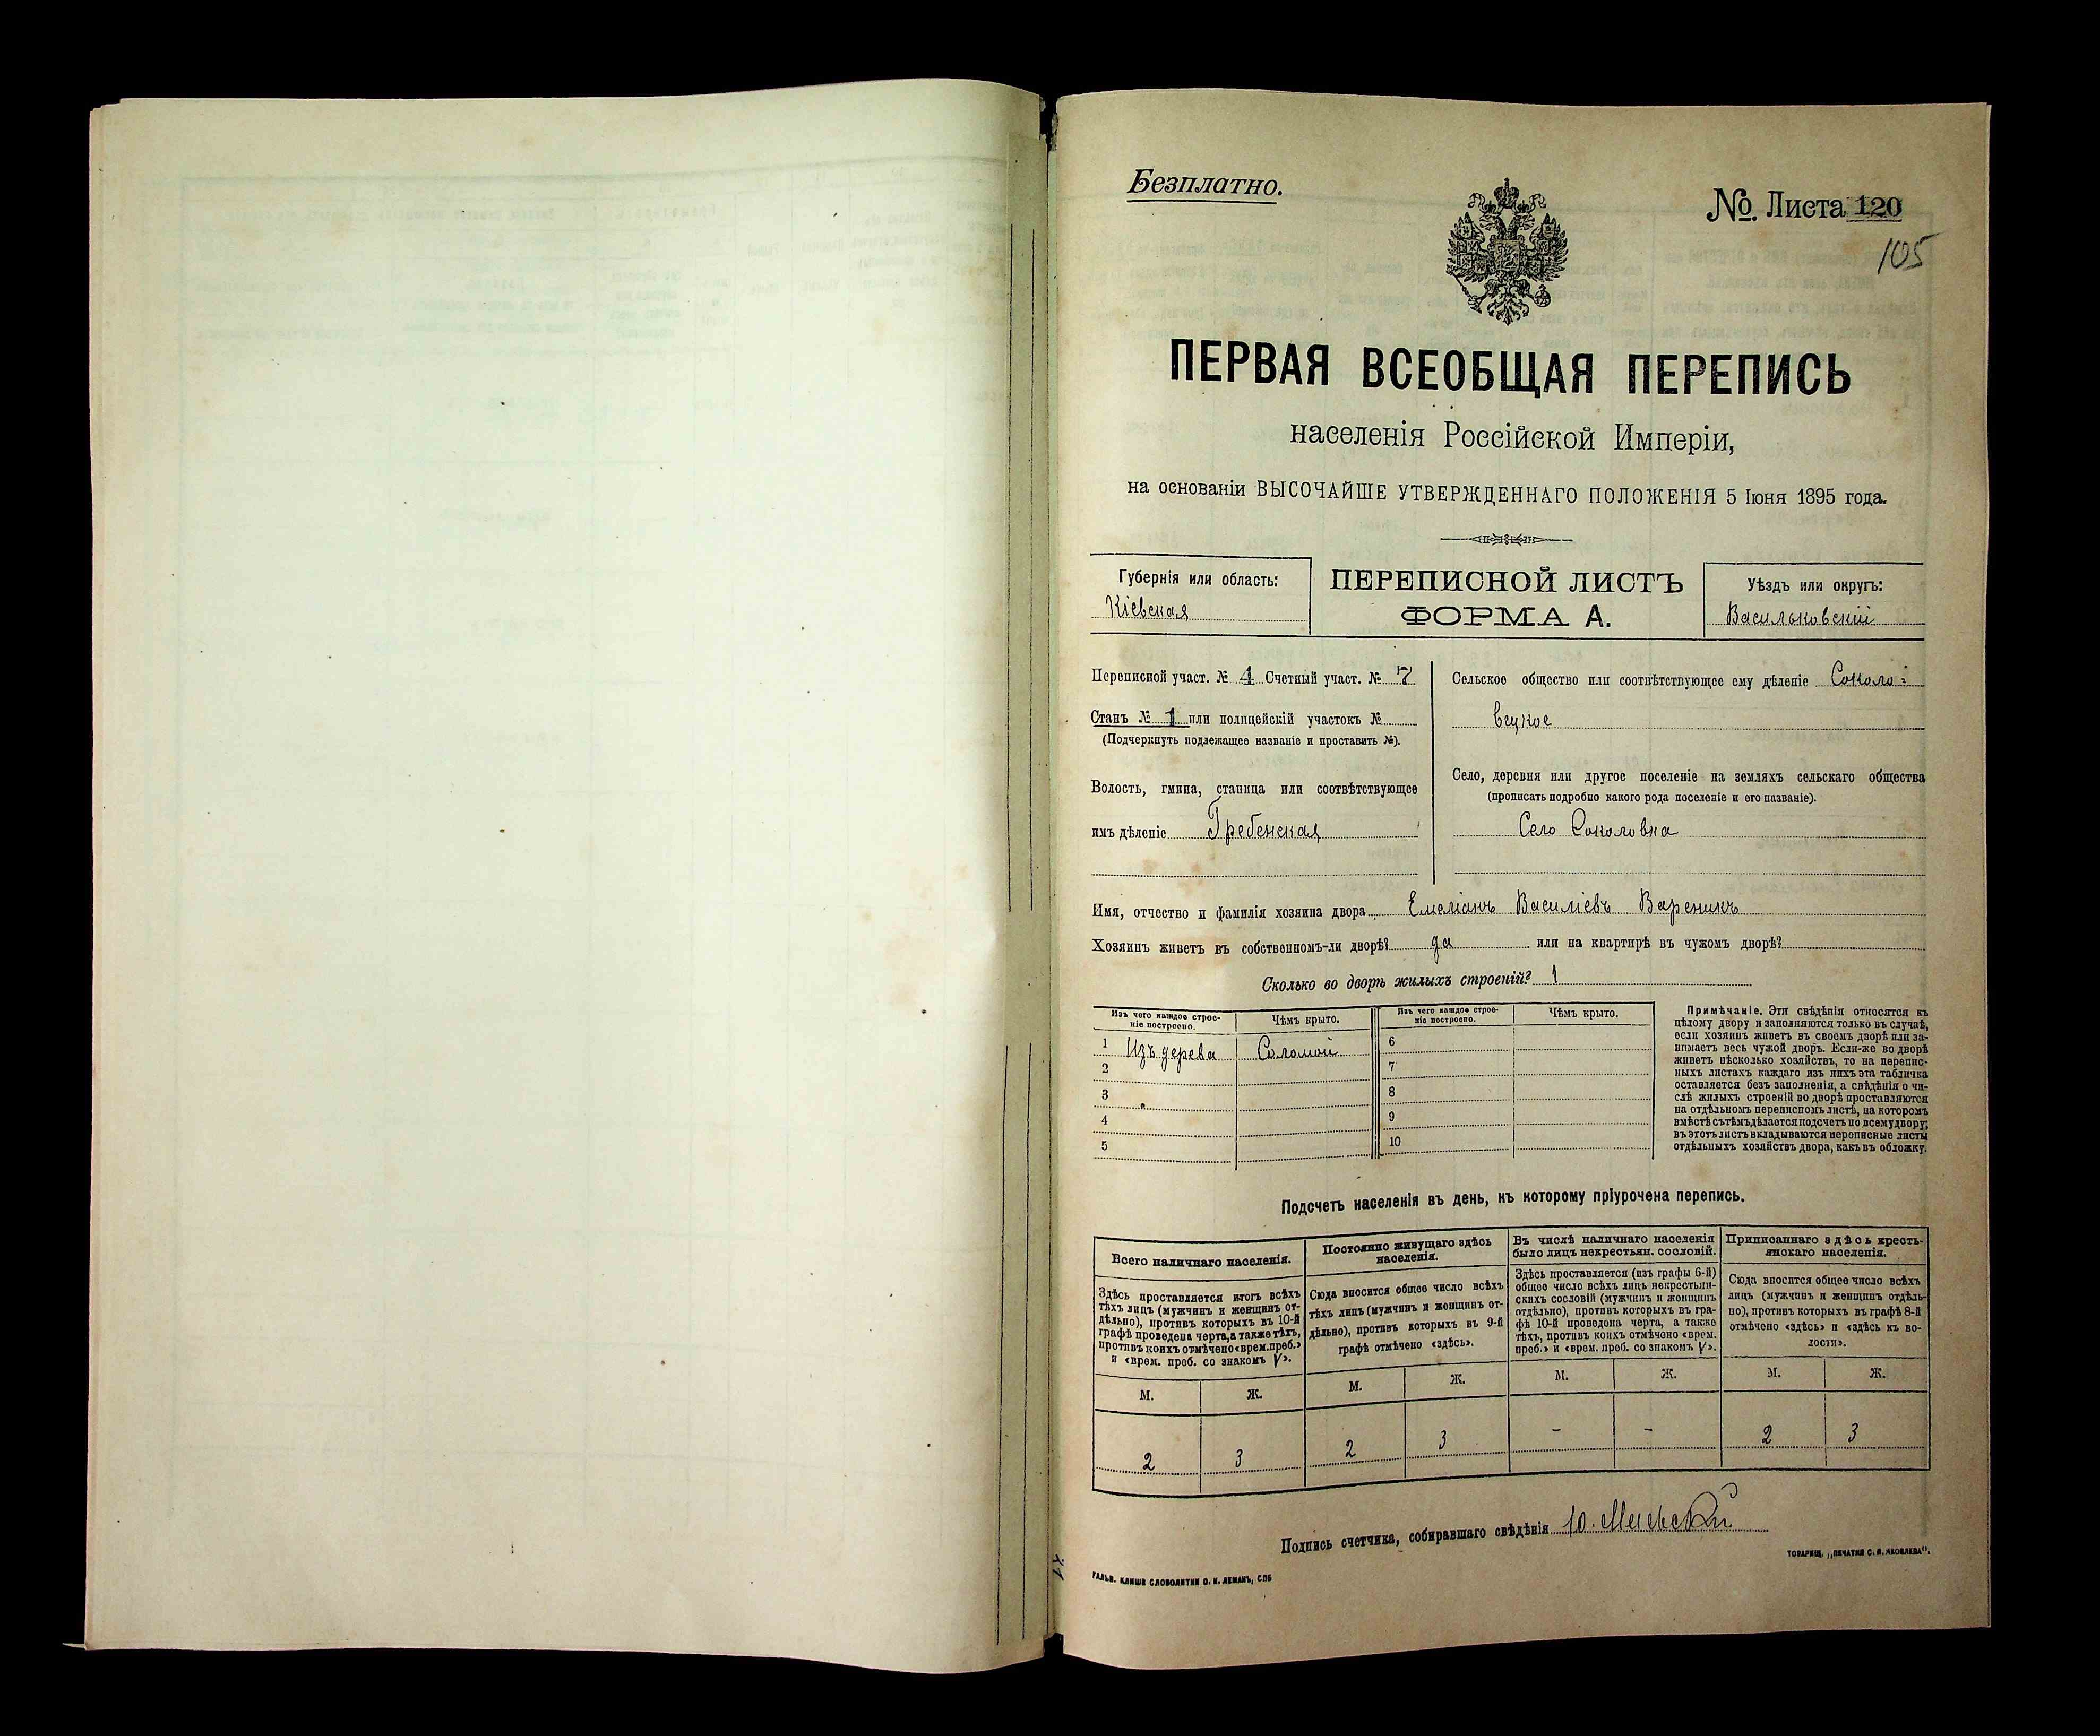 Безплатно.
№. Листа 120
105
ПЕРВАЯ ВСЕОБЩАЯ ПЕРЕПИСЬ
населенія Россійской Имперіи,
на основаніи ВЫСОЧАЙШЕ УТВЕРЖДЕННАГО ПОЛОЖЕНІЯ 5 Іюня 1895 года.
Губернія или область:
Кіевская
ПЕРЕПИСНОЙ ЛИСТЪ
ФОРМА А.
Уѣздъ или округъ:
Васильковскій
Переписной участ. № 4 Счетный участ. № 7
Станъ № 1 или полицейскій участокъ №
(Подчеркнуть подлежащее названіе и проставить №).
Волость, гмина, станица или соотвѣтствующее
имъ дѣленіе Гребенская
Сельское общество или соотвѣтствующее ему дѣленіе Соколо-
вецкое
Село, деревня или другое поселеніе на земляхъ сельскаго общества
(прописать подробно какого рода поселеніе и его названіе).
Село Соколовка
Имя, отчество и фамилія хозяина двора Емеліанъ Василіевъ Вареникъ
Хозяинъ живетъ въ собственномъ-ли дворѣ? да или на квартирѣ въ чужомъ дворѣ?
Сколько во дворѣ жилыхъ строеній? 1
Изъ чего каждое строе-
ніе построено.
Чѣмъ крыто.
1 Изъ дерева Соломой
2
3
4
5
Изъ чего каждое строе-
ніе построено.
Чѣмъ крыто.
6
7
8
9
10
Примѣчаніе. Эти свѣдѣнія относятся къ
цѣлому двору и заполняются только въ случаѣ,
если хозяинъ живетъ въ своемъ дворѣ или за-
нимаетъ весь чужой дворъ. Если-же во дворѣ
живетъ нѣсколько хозяйствъ, то на перепис-
ныхъ листахъ каждаго изъ нихъ эта табличка
оставляется безъ заполненія, а свѣдѣнія о чи-
слѣ жилыхъ строеній во дворѣ проставляются
на отдѣльномъ переписномъ листѣ, на которомъ
вмѣстѣ съ тѣмъ дѣлается подсчетъ по всему двору;
въ этотъ листъ вкладываются переписные листы
отдѣльныхъ хозяйствъ двора, какъ въ обложку.
Подсчетъ населенія въ день, къ которому пріурочена перепись.
Всего наличнаго населенія.
Здѣсь проставляется итогъ всѣхъ
тѣхъ лицъ (мужчинъ и женщинъ от-
дѣльно), противъ которыхъ въ 10-й
графѣ проведена черта, а также тѣхъ,
противъ коихъ отмѣчено «врем. преб.»
и «врем. преб. со знакомъ V».
М. Ж.
2 3
Постоянно живущаго здѣсь
населенія.
Сюда вносится общее число всѣхъ
тѣхъ лицъ (мужчинъ и женщинъ от-
дѣльно), противъ которыхъ въ 9-й
графѣ отмѣчено «здѣсь».
М. Ж.
2 3
Въ числѣ наличнаго населенія
было лицъ некрестьян. сословій.
Здѣсь проставляется (изъ графы 6-й)
общее число всѣхъ лицъ некрестьян-
скихъ сословій (мужчинъ и женщинъ
отдѣльно), противъ которыхъ въ гра-
фѣ 10-й проведена черта, а также
тѣхъ, противъ коихъ отмѣчено «врем.
преб.» и «врем. преб. со знакомъ V».
М. Ж.
- -
Приписаннаго здѣсь кресть-
янскаго населенія.
Сюда вносится общее число всѣхъ
лицъ (мужчинъ и женщинъ отдѣль-
но), противъ которыхъ въ графѣ 8-й
отмѣчено «здѣсь» и «здѣсь къ во-
лости».
М. Ж.
2 3
Подпись счетчика, собиравшаго свѣдѣнія Ю.
ГАЛЬВ. КЛИШЕ СЛОВОЛИТНИ О. И. ЛЕМАНЪ, СПБ
ТОВАРИЩ. „ПЕЧАТНЯ С. П. ЯКОВЛЕВА".